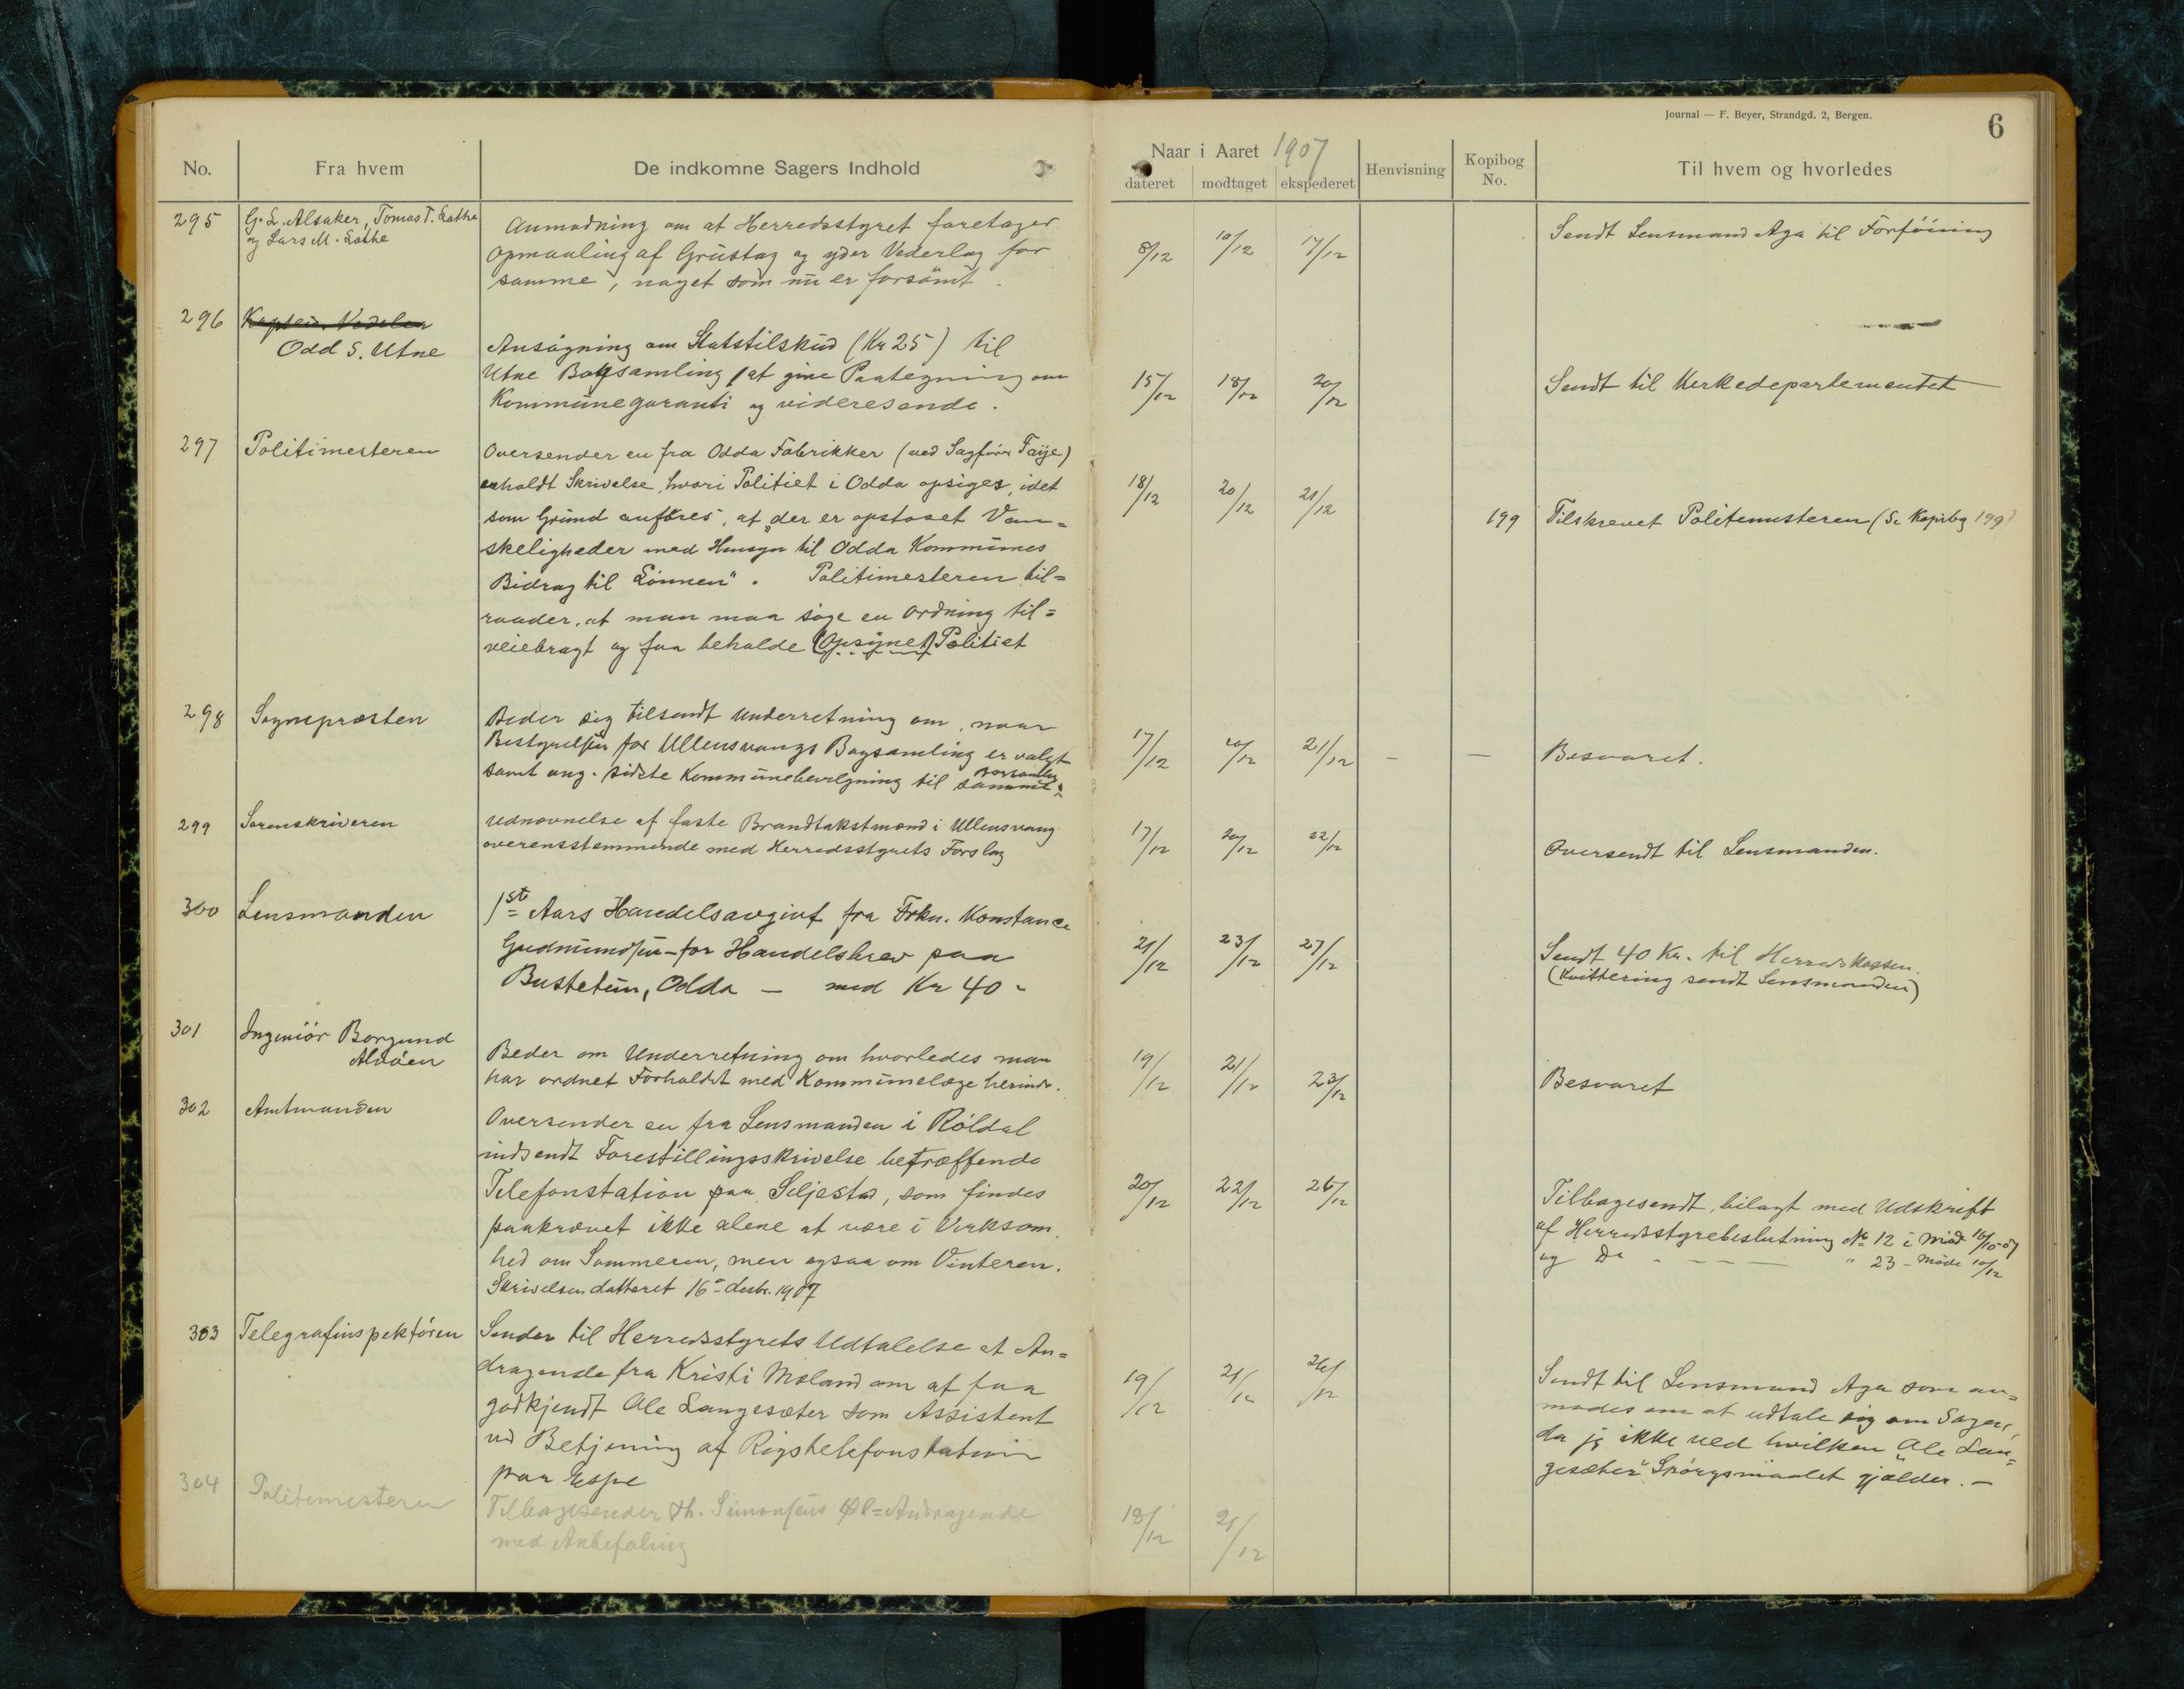 Journal — F. Beyer, Strandgd. 2, Bergen.
6
No.
Fra hvem
De indkomne Sagers Indhold
Naar i Aaret 1907
dateret modtaget ekspederet
Henvisning
Kopibog No.
Til hvem og hvorledes
295
G. L. Alsaker, Tomas T. Lothe
og Lars M. Lothe
Anmodning om at Herredsstyret foretager
Opmaaling af Grustag og yder Vederlag for
samme, noget som nu er forsömt.
8/12 10/12 17/12
Sendt Lensmand Aga til Forföining
296
Odd S. Utne
Ansögning om Statstilskud (Kr 25) til
Utne Bogsamling, at give Paategning om
Kommunegaranti og videresende.
15/12 18/12 20/12
Sendt til Kirkedepartementet
297
Politimesteren
Oversender en fra Odda Fabrikker (ved Sagförer Faye)
erholdt Skrivelse, hvori Politiet i Odda opsiges, idet
som Grund anföres, at „der er opstaaet Van=
skeligheder med Hensyn til Odda Kommunes
Bidrag til Lönnen". Politimesteren til=
raader, at man maa söge en Ordning til=
veiebragt og faa beholde (Opsynet) Politiet
18/12 20/12 21/12
199
Tilskrevet Politimesteren (Se Kopibog 199)
298
Sognepræsten
Beder sig tilsendt Underretning om, naar
Bestyrelsen for Ullensvangs Bogsamling er valgt
samt ang. sidste Kommunebevilgning til samme.
17/12 20/12 21/12 — —
Besvaret.
299
Sorenskriveren
Udnævnelse af faste Brandtakstmænd i Ullensvang
overensstemmende med Herredsstyrets Forslag
17/12 20/12 22/12
Oversendt til Lensmanden.
300
Lensmanden
1st Aars Handelsavgivt fra Frkn. Konstance
Gudmundsen – for Handelsbrev paa
Bustetun, Odda — med Kr 40 -
21/12 23/12 27/12
Sendt 40 Kr. til Herredskassen.
(Kvittering sendt Lensmanden)
301
Ingeniör Borgund
Alvöen
Beder om Underretning om hvorledes man
har ordnet Forholdet med Kommunelæge herinde.
19/12 21/12 23/12
Besvaret
302
Amtmanden
Oversender en fra Lensmanden i Röldal
indsendt Forestillingsskrivelse betræffende
Telefonstation paa Seljestad, som findes
paakrævet ikke alene at være i Virksom
hed om Sommeren, men ogsaa om Vinteren.
Skrivelsen datteret 16de desbr. 1907
20/12 22/12 26/12
Tilbagesendt, bilagt med Udskrift
af Herredsstyrebeslutning No 12 i Möd 16/10-07
og Do - - - — " 23 - Möde 10/12
303
Telegrafinspektören
Sender til Herredsstyrets Udtalelse et An=
dragende fra Kristi Mæland om at faa
godkjendt Ole Langesæter som Assistent
ved Betjening af Rigstelefonstation
paa Espe
19/12 21/12 26/12
Sendt til Lensmand Aga som an=
modes om at udtale sig om Sagen,
da jeg ikke ved hvilken „Ole Lan=
gesæter" Spörgsmaalet gjælder. —
304
Politimesteren
Tilbagesender Th. Simonsens Øl=Andragende
med Anbefaling
18/12 21/12